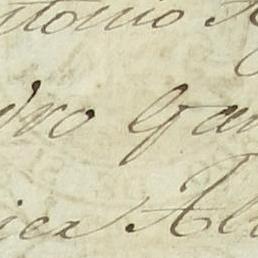 ntonio A
dro Gar
ica Al